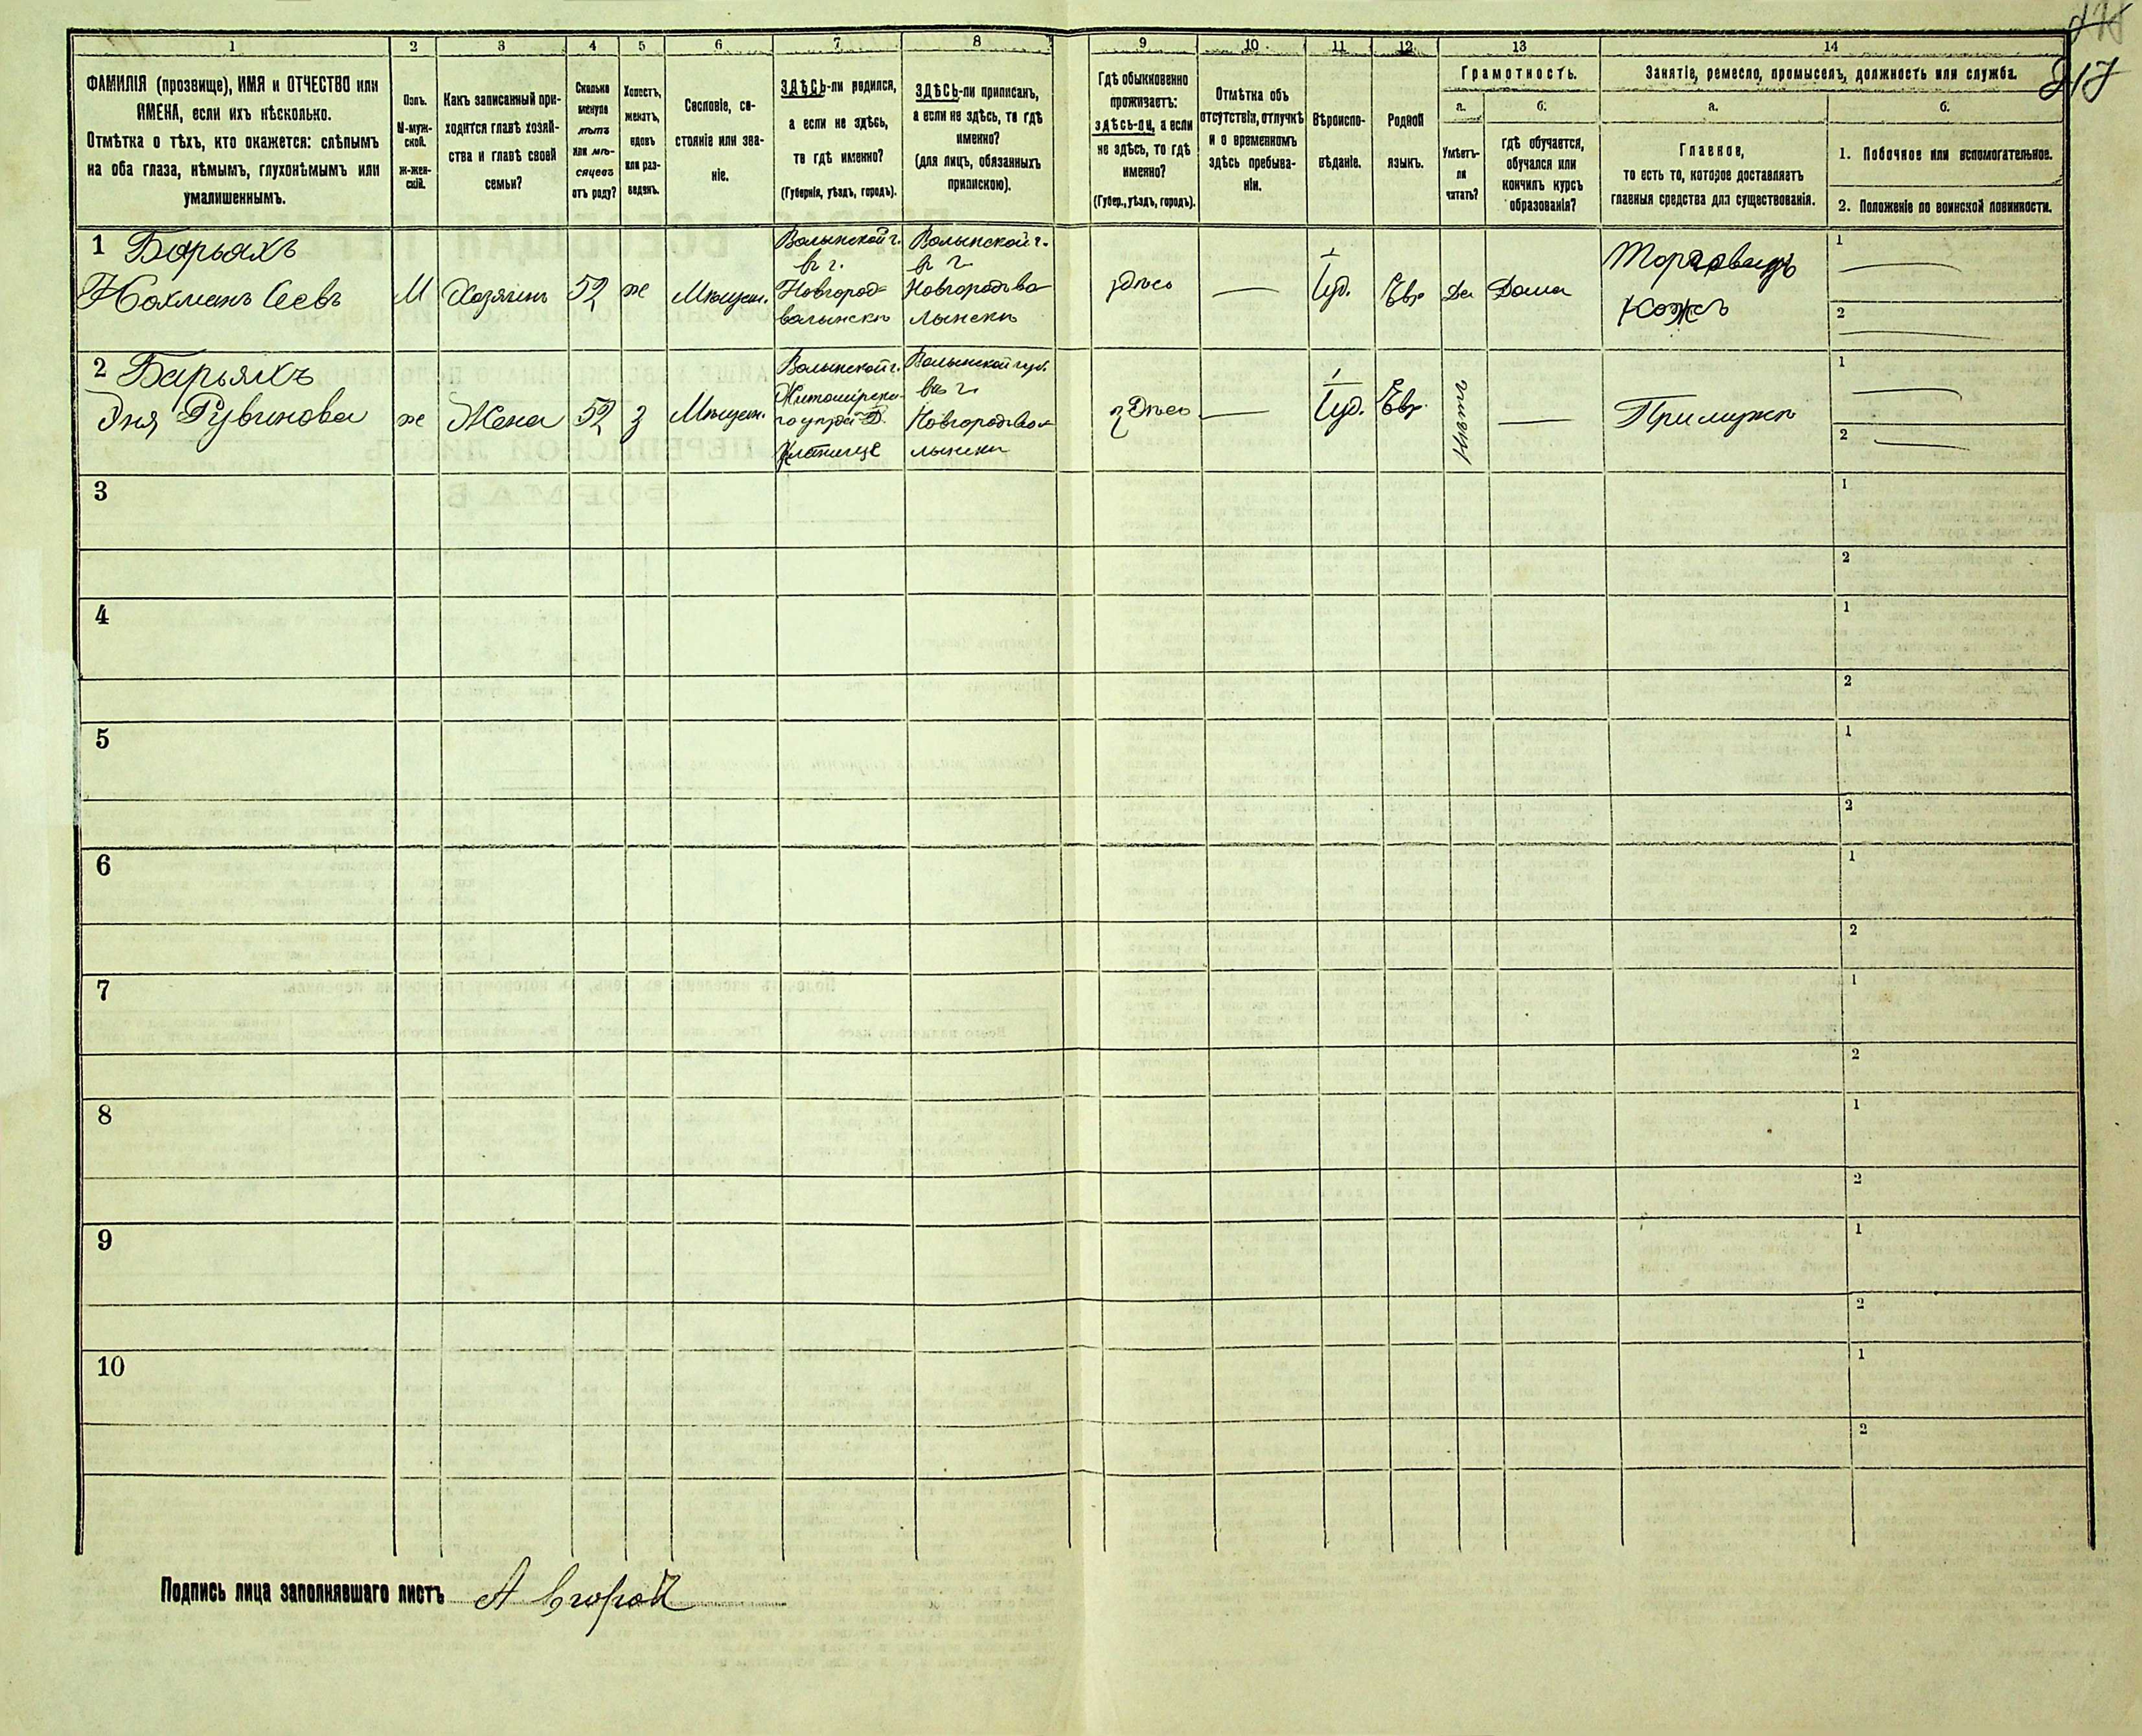 217
1 2 3 4 5 6 7 8 9 10 11 12 13 14
ФАМИЛІЯ (прозвище), ИМЯ и ОТЧЕСТВО или
ИМЕНА, если ихъ нѣсколько.
Отмѣтка о тѣхъ, кто окажется: слѣпымъ
на оба глаза, нѣмымъ, глухонѣмымъ или
умалишеннымъ.
Полъ.
М-муж-
ской.
Ж-жен-
скій.
Какъ записанный при-
ходится главѣ хозяй-
ства и главѣ своей
семьи?
Сколько
минуло
лѣтъ
или мѣ-
сяцевъ
отъ роду?
Холостъ,
женатъ,
вдовъ
или раз-
веденъ.
Сословіе, со-
стояніе или зва-
ніе.
ЗДѢСЬ-ли родился,
а если не здѣсь,
то гдѣ именно?
(Губернія, уѣздъ, городъ).
ЗДѢСЬ-ли приписанъ,
а если не здѣсь, то гдѣ
именно?
(для лицъ, обязанныхъ
припискою).
Гдѣ обыкновенно
проживаетъ:
здѣсь-ли, а если
не здѣсь, то гдѣ
именно?
(Губер., уѣздъ, городъ).
Отмѣтка объ
отсутствіи, отлучкѣ
и о временномъ
здѣсь пребыва-
ніи.
Вѣроиспо-
вѣданіе.
Родной
языкъ.
Грамотность.
а.
Умѣетъ-
ли
читать?
б.
гдѣ обучается,
обучался или
кончилъ курсъ
образованія?
Занятіе, ремесло, промыселъ, должность или служба.
а.
Главное,
то есть то, которое доставляетъ
главныя средства для существованія.
б.
1. Побочное или вспомогательное.
2. Положеніе по воинской повинности.
1 Барьяхъ
Нахманъ
М
Хозяинъ
52
ж
Мѣщан.
Волынской г.
в г.
Новгород-
волынскъ
Волынской г.
в г.
Новгородъво-
лынскъ
здѣсь
Іуд.
Евр
Да
Дома
Торговецъ
кожъ
1
2
2 Барьяхъ
Рувинова
ж
Жена
52
з
Мѣщан.
Волынской г.
Житомірска-
Волынской губ.
в г.
Новгородъвол-
лынскъ
здѣсь
Іуд.
Евр.
Нѣтъ
При мужѣ
1
2
3
1
2
4
1
2
5
1
2
6
1
2
7
1
2
8
1
2
9
1
2
10
1
2
Подпись лица заполнявшаго листъ